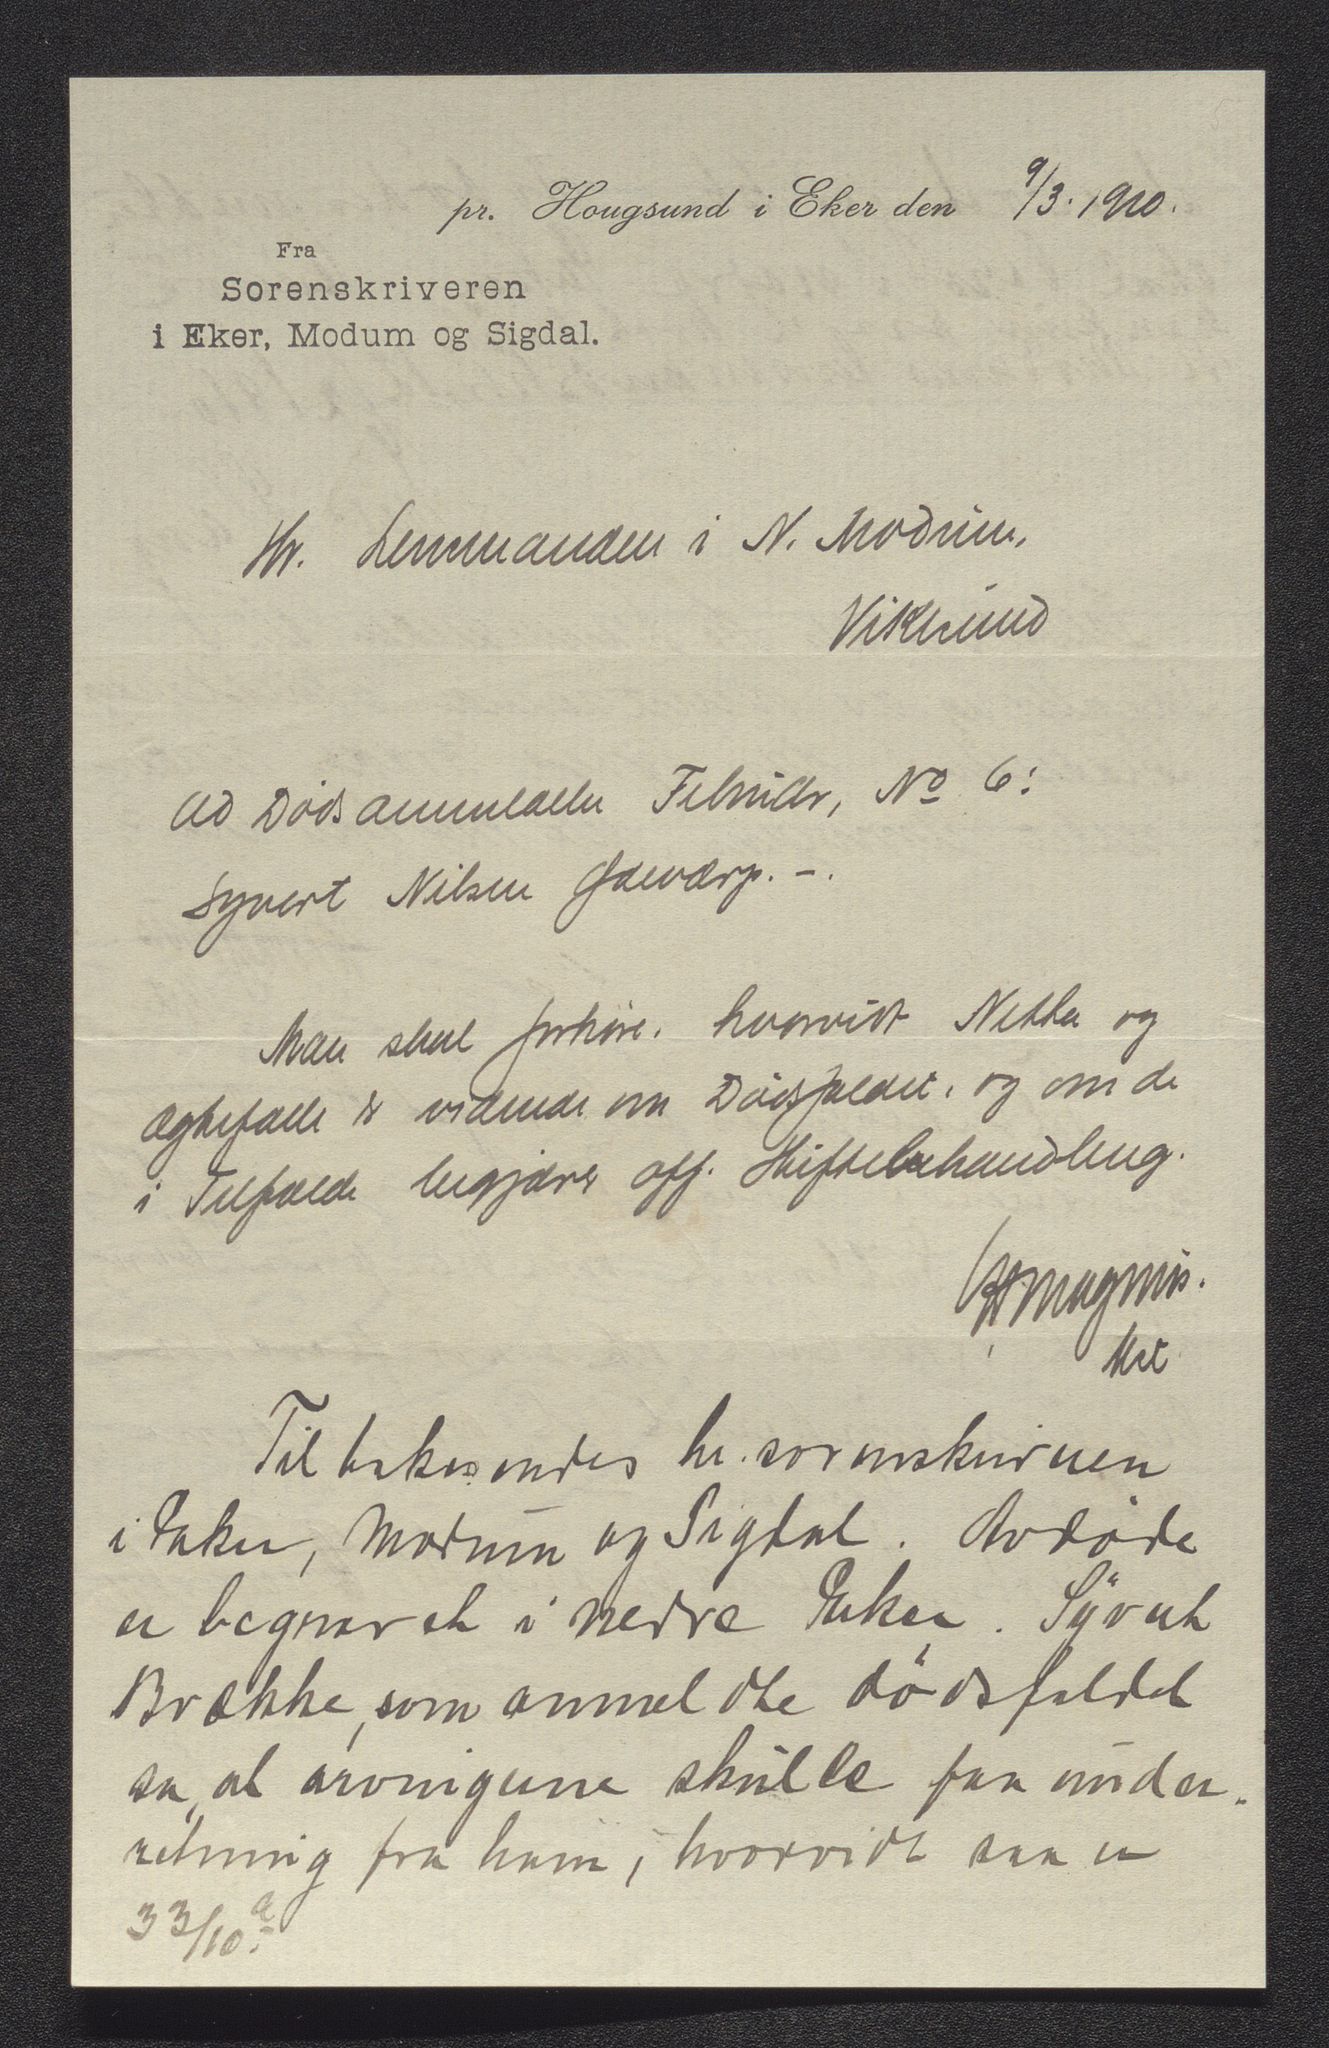 pr. Hougsund i Eker den 9/3. 1910.
Fra
Sorenskriveren
i Eker, Modum og Sigdal.
Hr. Lensmanden i N. Modum,
Vikesund
Ad Dødsanmeldelse Februar, No 6:
Syvert Nilsen
Man skal forhøre, hvorvidt og
er vidende om Dødsfaldet, og om de
i Tilfælde begjærer off. Skiftebehandling.
Magnus.
Tilbakesendes hr. sorenskriveren
i Eker, Modum og Sigdal. Avdøde
er begravet i nedre Eker. Syvert
Brække, som anmeldte dødsfaldet
sa, at arvingerne skulde faa under-
retning fra ham, hvorvidt saa er
33/10 a.